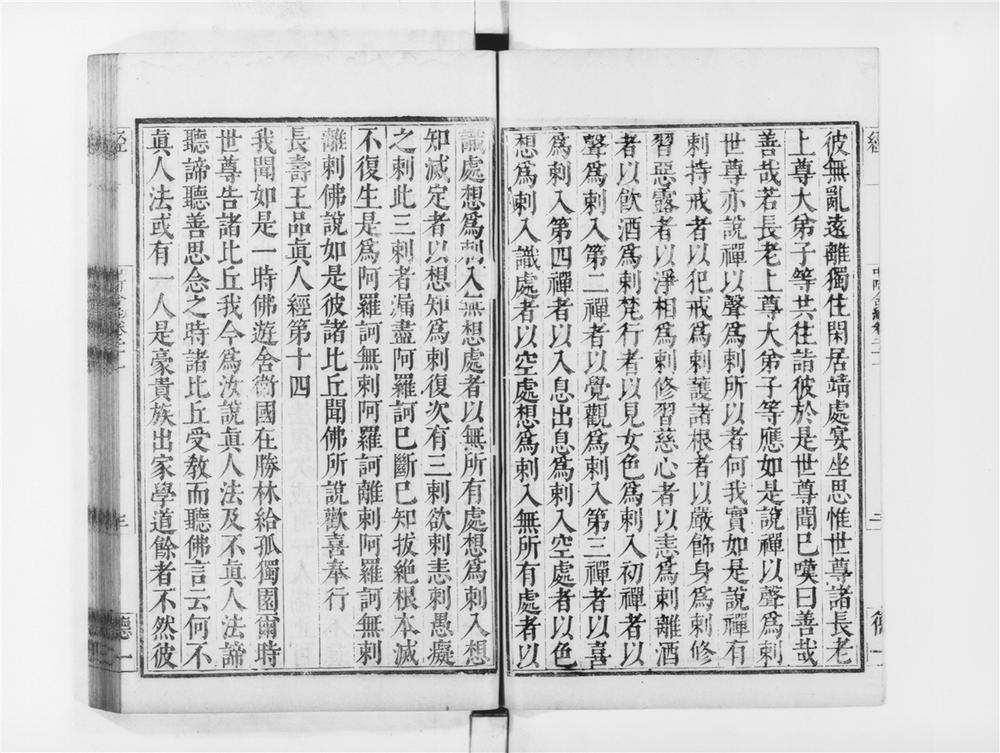 彼無亂遠離獨住閑居靖處宴坐思惟世尊諸長老
上尊大弟子等共往詣彼於是世尊聞巳嘆曰善哉
善哉若長老上尊大弟子等應如是說禪以聲爲刺
世尊亦說禪以聲爲刺所以者何我實如是說禪有
刺持戒者以犯戒爲刺護諸根者以嚴飾身爲刺修
習惡露者以淨相爲刺修習慈心者以恚爲刺離酒
者以飮酒爲刺梵行者以見女色爲刺入初禪者以
聲爲刺入第二禪者以覺觀爲刺入第三禪者以喜
爲刺入第四禪者以入息出息爲刺入空處者以色
想爲刺入識處者以空處想爲刺入無所有處者以
識處想爲刺入無想處者以無所有處想爲刺入想
知滅定者以想知爲刺復次有三刺欲刺恚刺愚癡
之刺此三刺者漏盡阿羅訶巳斷巳知拔絕根本滅
不復生是爲阿羅訶無刺阿羅訶離刺阿羅訶無刺
離刺佛說如是彼諸比丘聞佛所說歡喜奉行
長壽王品眞人經第十四
我聞如是一時佛遊舍衞國在勝林給孤獨園爾時
世尊告諸比丘我今爲汝說眞人法及不眞人法諦
聽諦聽善思念之時諸比丘受敎而聽佛言云何不
眞人法或有一人是豪貴族出家學道餘者不然彼